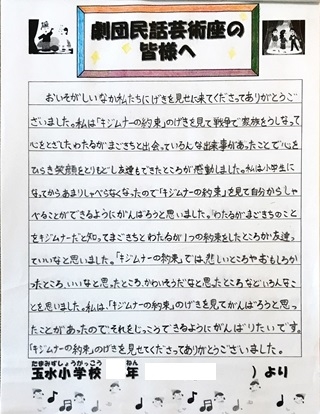 劇団民話芸術座の
皆様へ
おいそがしいなか私たちにげきを見せに来てくださってありがとうご
ざいました。私は「キジムナーの約束」のげきを見て戦争で家族をうしなって
心をとざしたわたるがまごきちと出会っていろんな出来事があったことで心を
ひらき笑顔をとりもどし友達もできたところが感動しました。私は小学生に
なってからあまりしゃべらなくなったので「キジムナーの約束」を見て自分からしゃ
べることができるようにがんばろうと思いました。わたるがまごきちのこと
をキジムナーだと知ってまごきちとわたるが1つの約束をしたところが友達っ
ていいなと思いました。「キジムナーの約束」では悲しいところやおもしろか
ったところ、いいなと思ったところ、かわいそうだなと思ったところなどいろんなこ
とを思いました。私は、「キジムナーの約束」のげきを見てがんばろうと思っ
たことがあったのでそれをじっこうできるようにがんばりたいです。
「キジムナーの約束」のげきを見せてくださってありがとうございました。
たまみずしょうがっこう ねん
玉水小学校 年 ) より